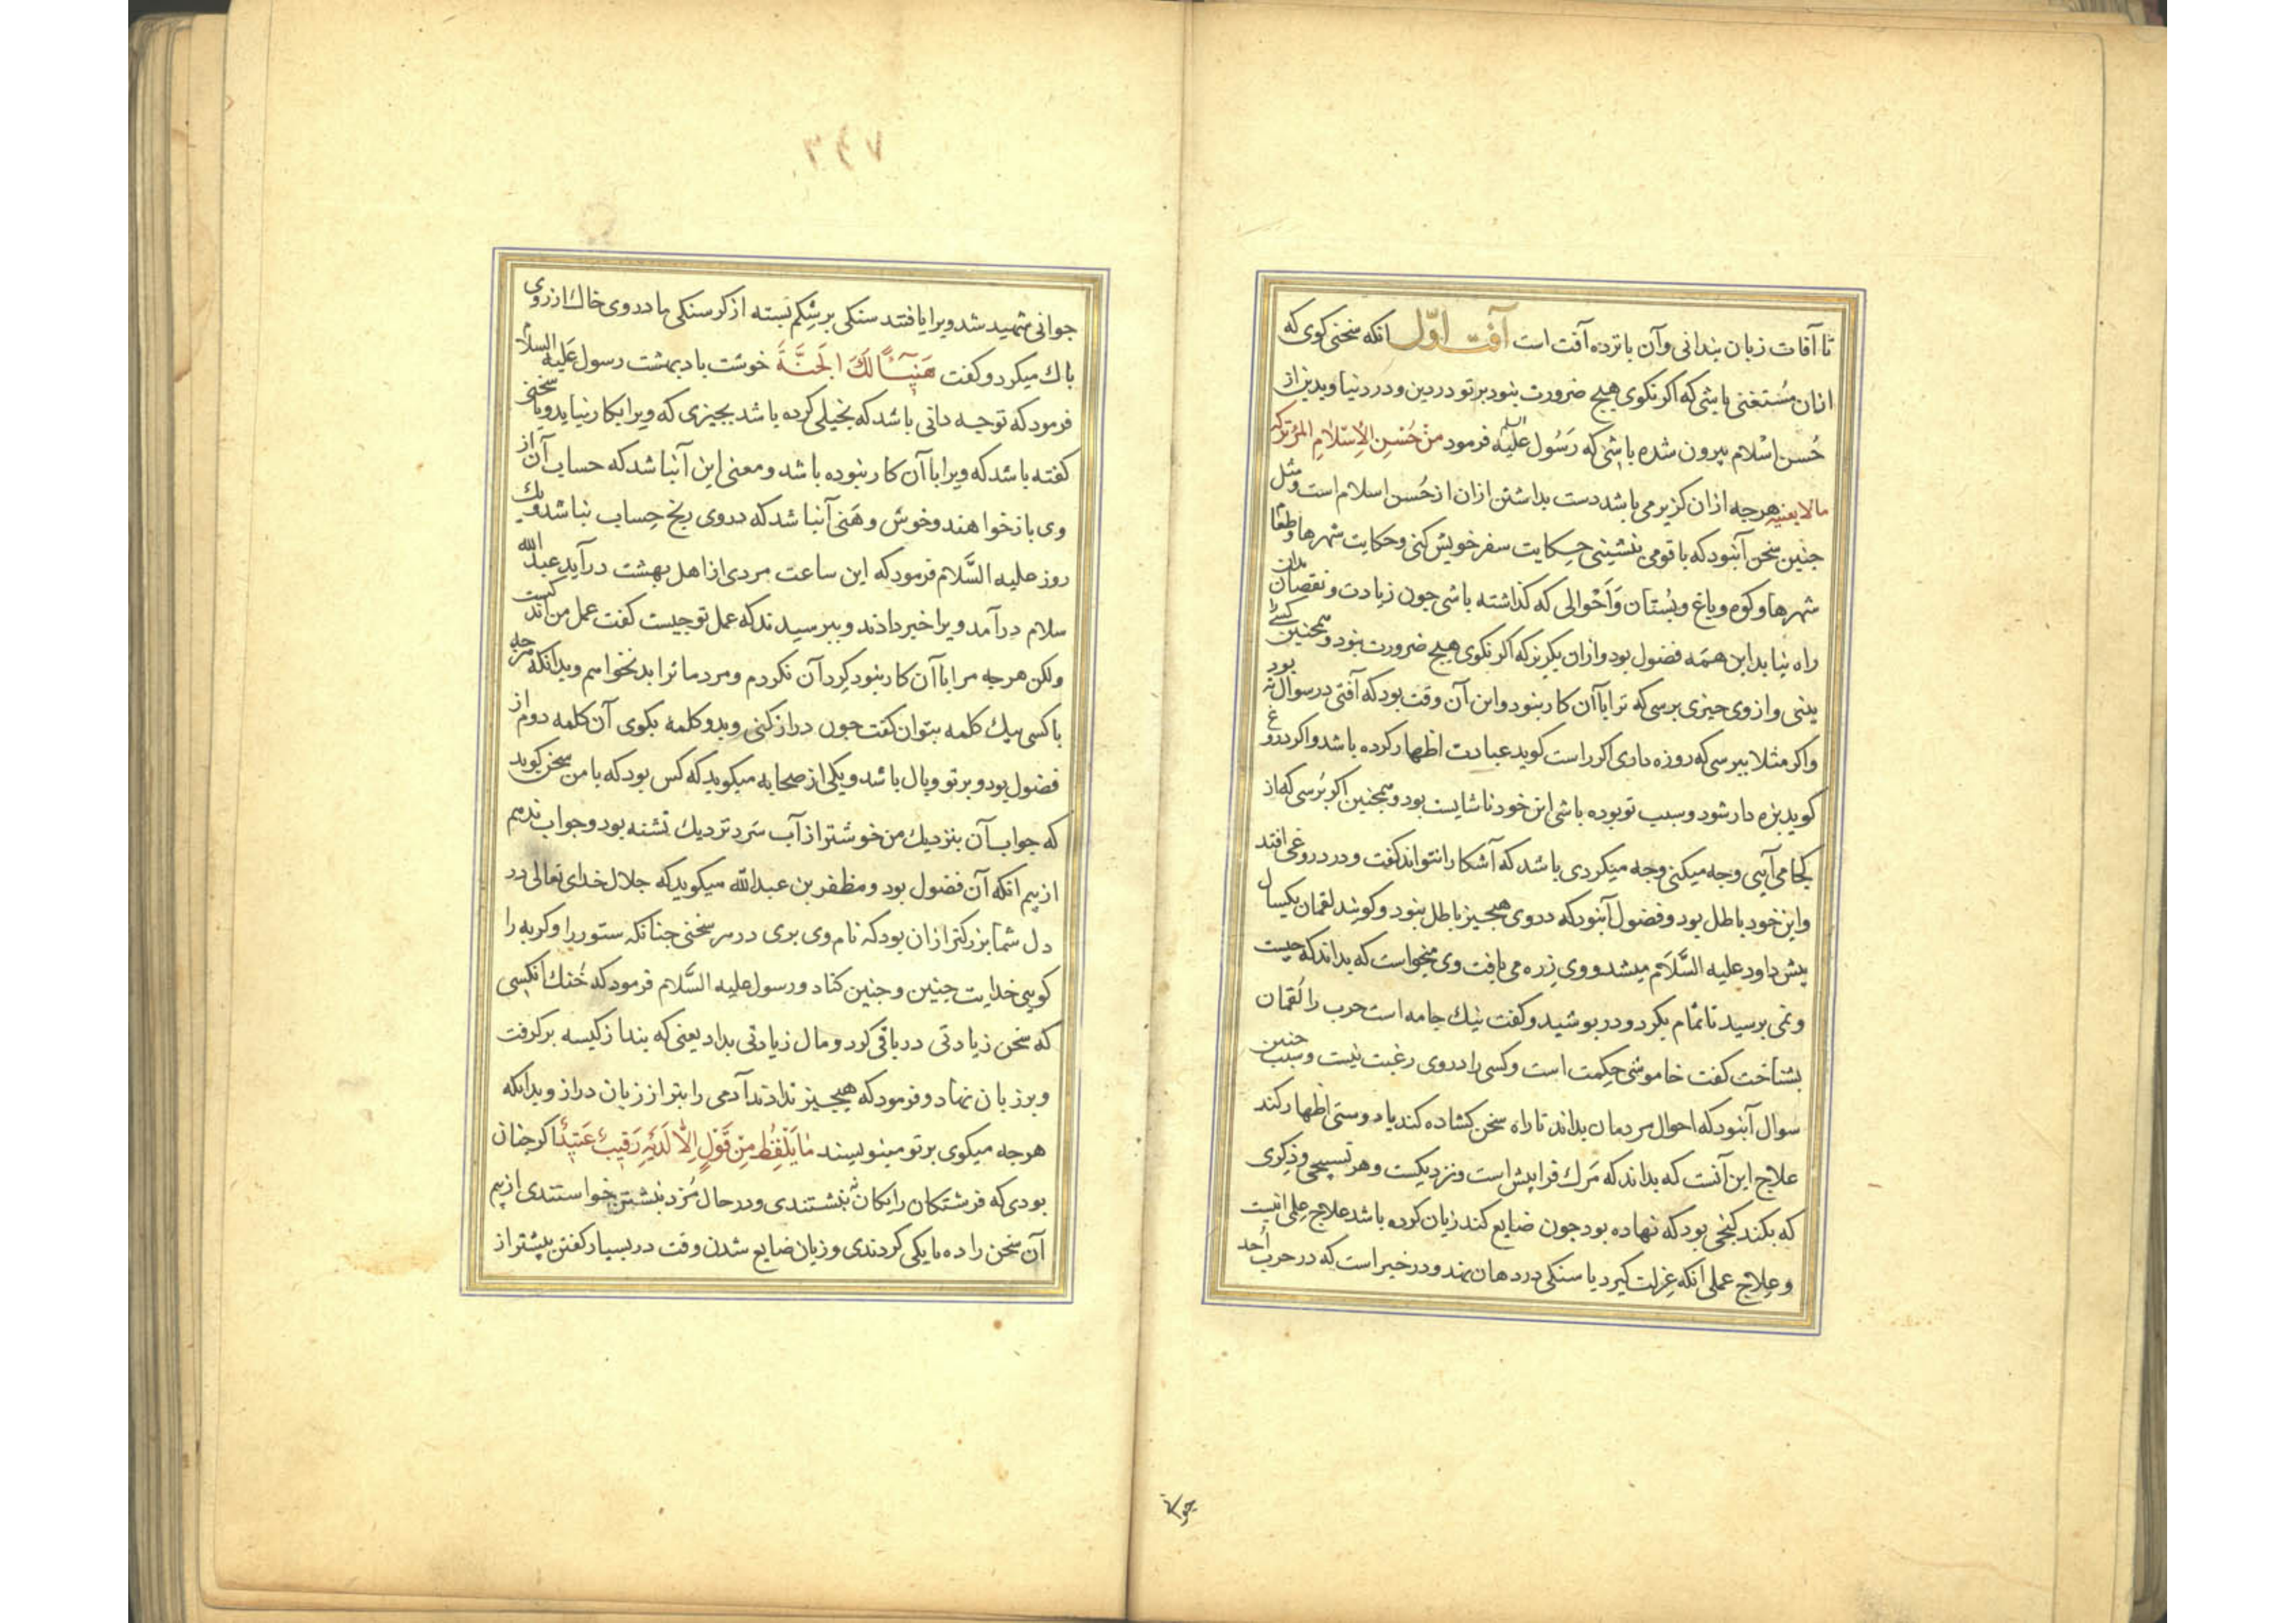 تا آفات زبان بدانی وآن بانزده آفت است آفت اوّل انکه سخنی کوی که
ازان مُستغنی باشی که اکر نکوی هیچ ضرورت نبود برتو دردین ودردنیا وبدین از
حُسن اسْلام بیرون شده باشی که رَسُول علیه السلم فرمود مِنْ حُسْنِ الْاِسْلامِ الْمَرْءِ تَرْکُه
مالا یعنیه هرجه ازان کزیر می باشد دست بداشتن ازان از حُسن اسلام است ومثل
جنین سخن آنبود که با قومی بنشینی حِکایت سفر خویش کنی وحکایت شهرها وطعا
شهرها وکوه وباغ وبُستان وَاَحْوالی که کذاشته باشی جون زیادت ونقصان بدان
راه نیابد این همَه فضول بود وازان بکریزکه اکر نکوی هیچ ضرورت نبود وهمچنین کسی را
بینی وازوی جیزی برسی که ترا باآن کار نبود واین آن وقت بود که آفتی در سوال نه بود
واکر مثلا ببرسی که روزه داری اکر راست کوید عبادت اظهار کرده باشد واکر دروغ
کوید بزه دار شود وسبب تو بوده باشی این خود ناشایست بود وهمجنین اکر بُرسی که از
کجا می آیی وجه میکنی وجه میکردی باشد که آشکارا نتواند کفت ودر دروغی افتد
واین خود باطل بود وفضول آنبود که دروی هیجیز باطل نبود وکویند لقمان یکسال
بیش داود علیه السَّلَام میشد ووی زره می بافت وی میخواست که بداند که جیست
ونمی برسید تا تمام بکرد ودر بوشید وکفت نیك جامه است حرب را لُقمان
بشناخت کفت خاموشی حِکِمت است وکسی را دروی رغبت نیست وسبب جنین
سوال آنبود که احوال مردمان بداند تا راه سخن کشاده کند یا دوستی اظهار کند
علاج این آنست که بداند که مَرك فرا بیش است ونزدیکست وهر تسبیحی وذِکری
که بکند کنجی بود که نهاده بود جون ضایع کند زیان کرده باشد علاج عِلمی اینست
وعِلاج عملی آنکه عِزلت کیرد یا سنکی در دهان نهد ودر خبر است که در حرب اُحد
جوانی
جوانی شهید شد ویرا یافتند سنکی برشِکم بَسته از کرسنکی مادر وی خاك از روی
باك میکرد وکفت هَنِیـًٔا لَكَ الْجَنَّةَ خوشت باد بهشت رسول عَلیه السلام
فرمود که توجه دانی باشد که بخیلی کرده باشد بجیزی که ویرا بکار نیاید ویا سخنی
کفته باشد که ویرا باآن کار نبوده باشد ومعنی این آنباشد که حساب آن از
وی باز خواهند وخوش وهَنی آنباشد که دروی رنج حِساب نباشد ویك
روز علیه السَّلام فرمود که این ساعت مردی از اهل بهشت در آید عبد الله
سلام در آمد ویرا خبر دادند وببرسیدند که عمل تو جیست کفت عمل من اندکست
ولکن هرجه مرا باآن کار نبود کِرد آن نکردم ومردمانرا بد نخواسم وبدانکه هرجه
باکسی بیك کلمه بتوان کفت جون دراز کنی وبدو کلمه بکوی آن کلمه دوم از
فضول بود وبرتو وبال باشد ویکی از صحابه میکوید که کس بود که بامن سخن کوید
که جواب آن بنزدیك من خوشتر از آب سَرد نزدیك تشنه بود وجواب ندهم
از بیم انکه آن فضول بود ومظفر بن عبدالله میکوید که جلال خدای تعالی در
دل شما بزرکتر ازان بود که نام وی بری در هر سخنی جنانکه ستور را وکربه را
کویی خدایت جنین وجنین کناد ورسول علیه السَّلام فرمود که خُنك انکسی
که سخن زیادتی در باقی کرد ومال زیادتی بداد یعنی که بند از کیسه برکرفت
وبر زبان نهاد وفرمود که هیجیز ندادند آدمی را بتر از زبان دراز وبدانکه
هرجه میکوی برتو مینویسند مٰا یَلْفِظُ مِنْ قَوْلٍ اِلّٰا لَدَیْهِ رَقِیبٌ عَتِیدٌ اکر جنان
بودی که فرشتکان رایکان ننبشتندی ودر حال مُزد نبشتن خواستندی از بیم
آن سخن را ده با یکی کردندی وزیان ضایع شدن وقت در بسیار کفتن بیشتر از